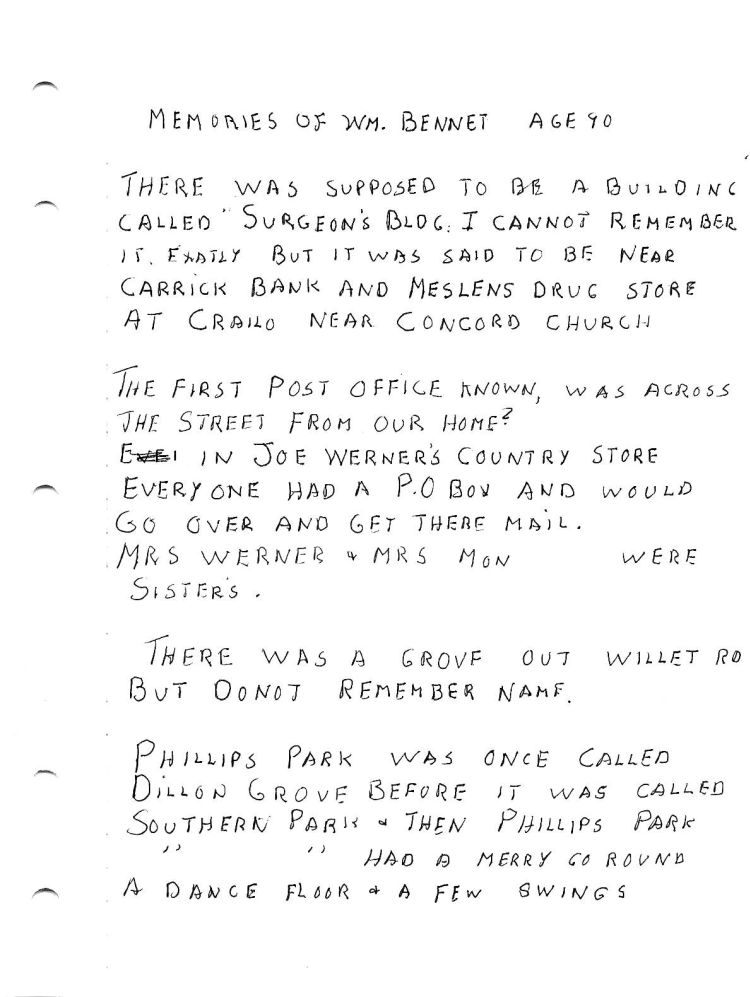 MEMORIES OF WM. BENNET AGE 90
THERE WAS SUPPOSED TO BE A BUILDING
CALLED " SURGEON'S BLDG. I CANNOT REMEMBER
IT. EXATLY BUT IT WAS SAID TO BE NEAR
CARRICK BANK AND MESLENS DRUG STORE
AT CRAILO NEAR CONCORD CHURCH
THE FIRST POST OFFICE KNOWN, WAS ACROSS
THE STREET FROM OUR HOME?
IN JOE WERNER'S COUNTRY STORE
EVERYONE HAD A P.O BOX AND WOULD
GO OVER AND GET THERE MAIL.
MRS WERNER & MRS MON WERE
SISTER'S.
THERE WAS A GROVE OUT WILLET RD
BUT DONOT REMEMBER NAME.
PHILLIPS PARK WAS ONCE CALLED
DILLON GROVE BEFORE IT WAS CALLED
SOUTHERN PARK & THEN PHILLIPS PARK
" " HAD A MERRY GO ROUND
A DANCE FLOOR & A FEW SWINGS